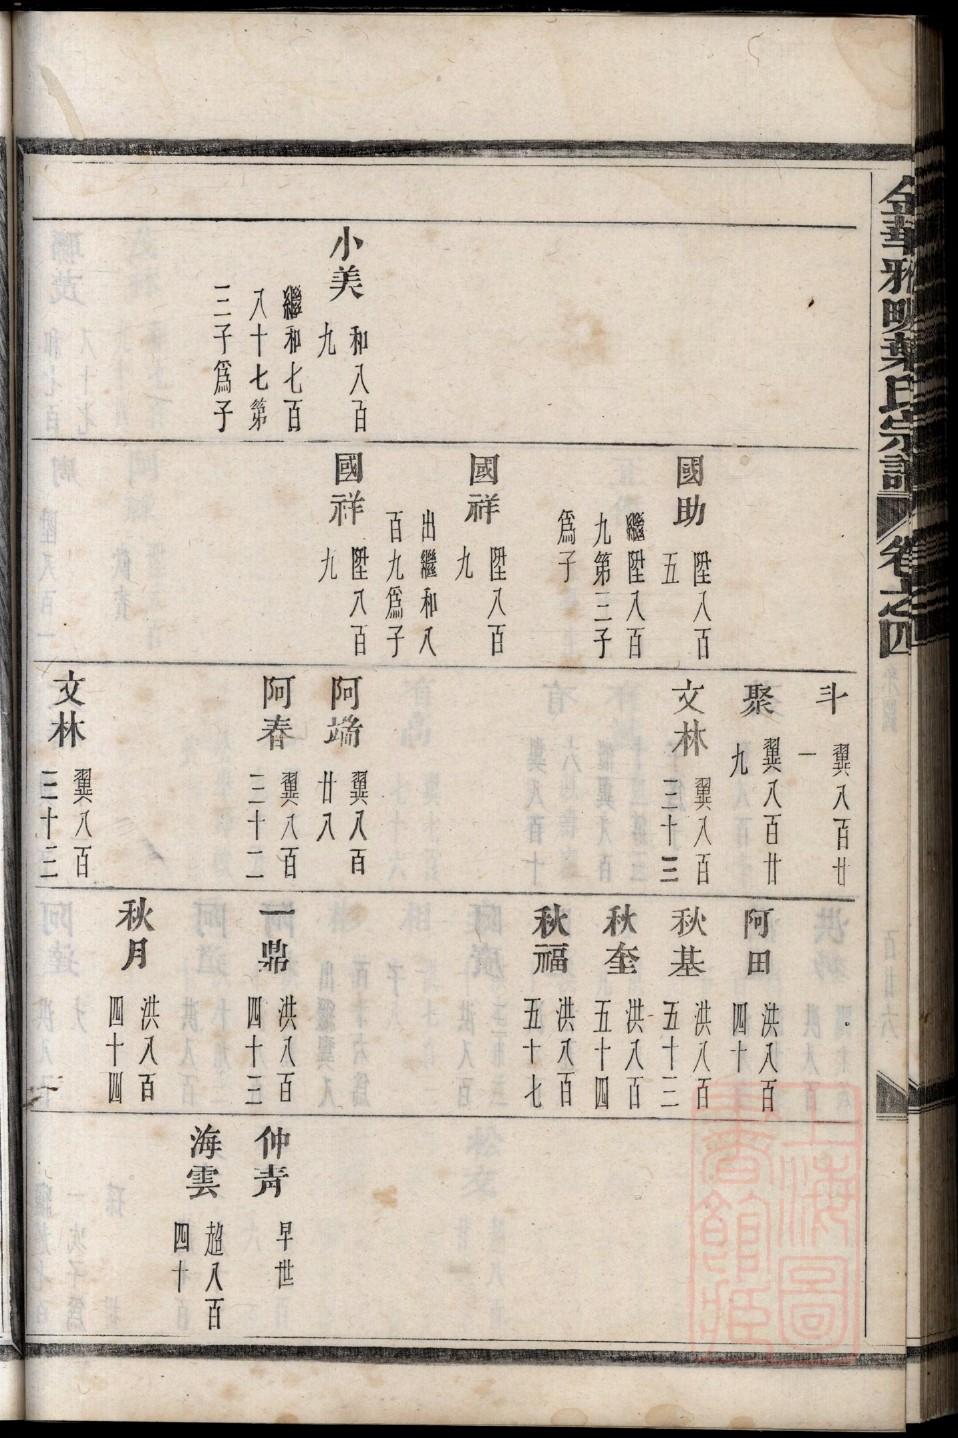 金華雅畈葉氏宗譜
卷之四
小美
和八百
九
繼和七百
八十七第
三子爲子
國助
陞八百
五
繼陞八百
九第三子
爲子
國祥
陞八百
九
出繼和八
百九爲子
國祥
陞八百
九
斗
翼八百廿
一
聚
翼八百廿
九
文林
翼八百
三十三
阿端
翼八百
廿八
阿春
翼八百
三十二
文林
翼八百
三十三
阿田
洪八百
四十
秋基
洪八百
五十三
秋奎
洪八百
五十四
秋福
洪八百
五十七
一鼎
洪八百
四十三
秋月
洪八百
四十四
仲青
早世
海雲
超八百
四十
上海圖
書館藏